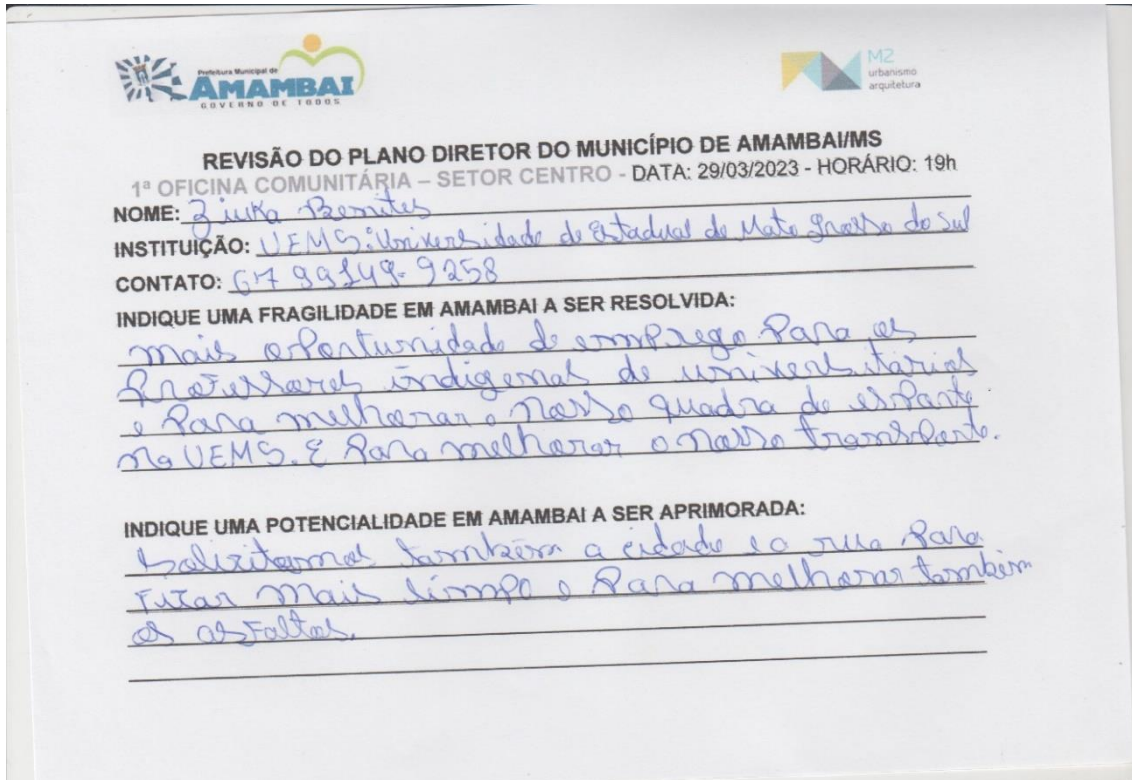 Prefeitura Municipal de
AMAMBAI
GOVERNO DE TODOS
M2
urbanismo
arquitetura
REVISÃO DO PLANO DIRETOR DO MUNICÍPIO DE AMAMBAI/MS
1ª OFICINA COMUNITÁRIA – SETOR CENTRO - DATA: 29/03/2023 - HORÁRIO: 19h
NOME: Benites
INSTITUIÇÃO: UEMS: Universidade de Estadual de Mato Grosso do Sul
CONTATO: 67 99149-9258
INDIQUE UMA FRAGILIDADE EM AMAMBAI A SER RESOLVIDA:
mais oportunidade de emprego Para os
Professores indigenas de universitários
e Para melhorar o nosso quadra de esporte
na UEMS. E Para melhorar o nosso transporte.
INDIQUE UMA POTENCIALIDADE EM AMAMBAI A SER APRIMORADA:
Solicitamos também a cidade e a rua Para
ficar mais limpo e Para melhorar também
os asfaltos.